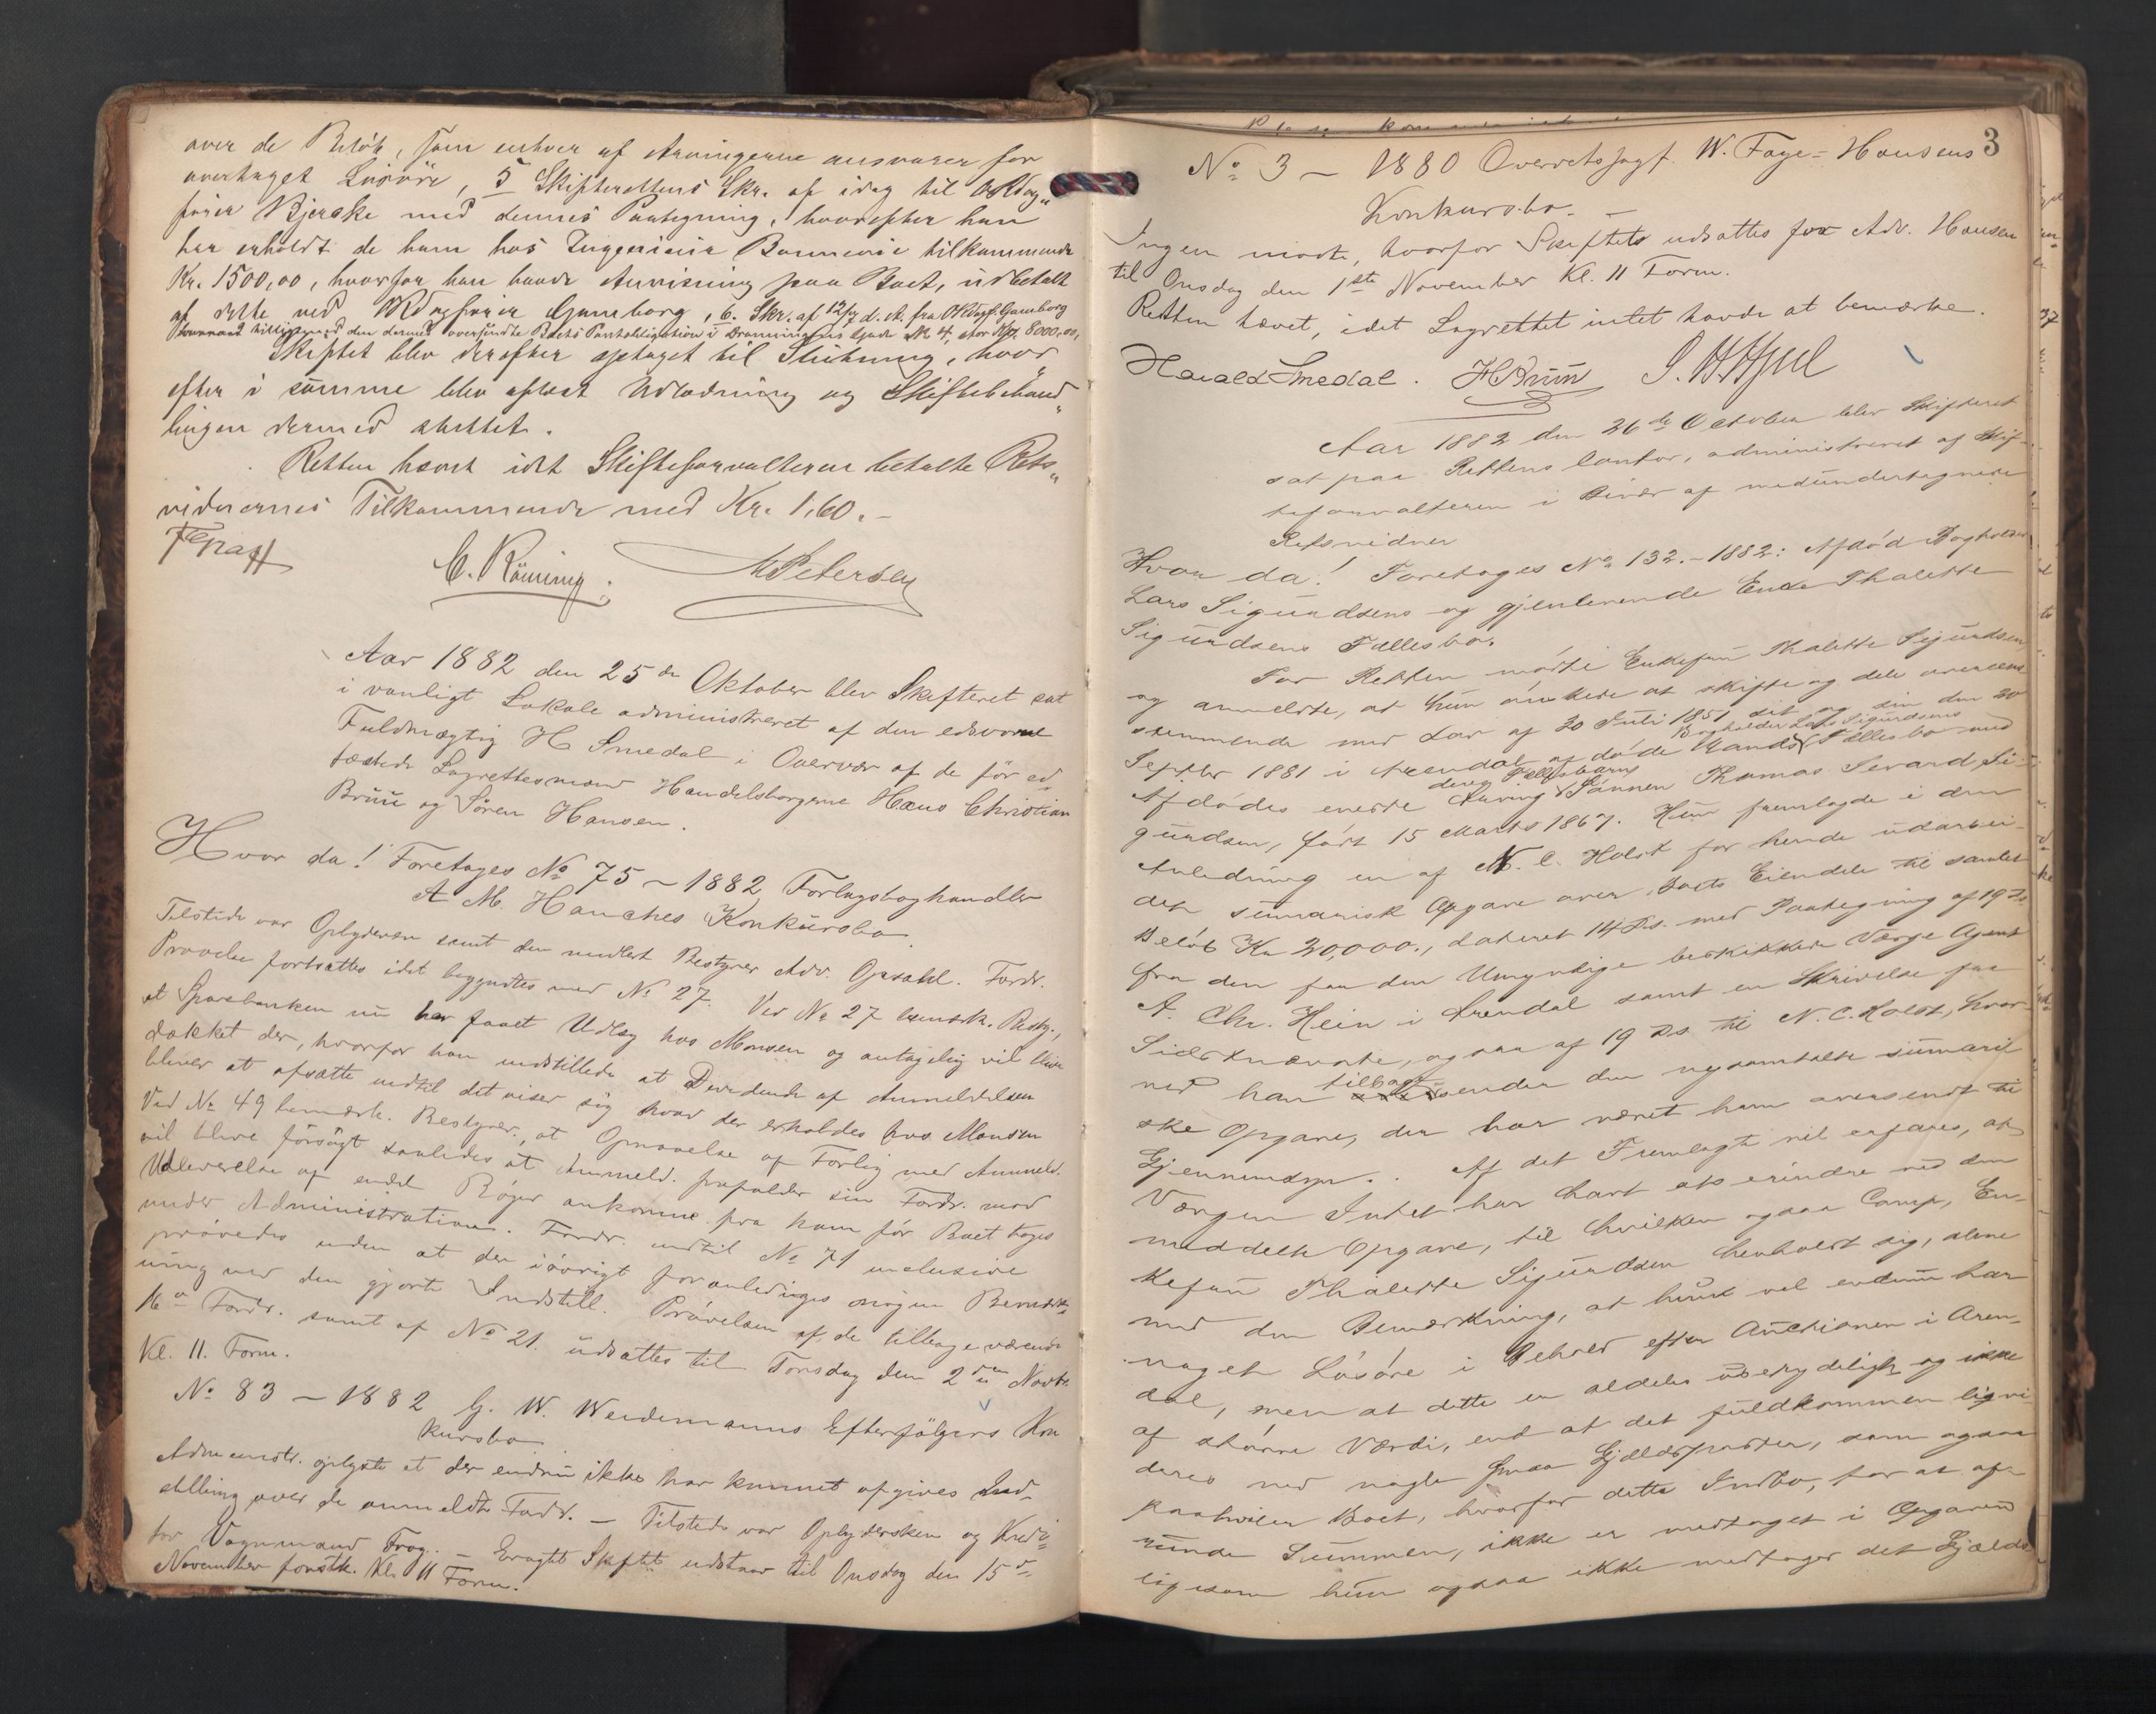 over de Beløb, som enhver af Arvingerne ansvarer for
overtaget Løsøre, 5 Skifterettens Skr. af idag til ORSag„
fører Bjerake med dennes Paategning, hvorefter han
har erholdt de ham hos Ingeniør tilkommende
Kr. 1500,00, hvorfor han havde Anvisning paa Boet, udbetalt
af dette ved ORSagfører Gamborg, 6. Skr. af 12/7 d. A. fra ORSagf. Gamborg
den dermed oversendte Boets Pantobligation i Dronningens Gade No 4, stor 8000,00,
Skiftet blev derefter optaget til Slutning, hvor„
efter i samme blev afsagt Udlodning og Skiftebehand„
lingen dermed sluttet.
Retten hævet idet Skifteforvalteren betalte Rets„
vidnernes Tilkommende med Kr. 1,60.-
C. Rönning. Petersen
Aar 1882 den 25de Oktober blev Skifteret sat
i vanligt Lokale administreret af den edsvorne
Fuldmægtig H Smedal i Overvær af de før ed„
fæstede Lagrettesmænd Handelsborgerne Hans Christian
Bruu og Søren Hansen.
Hvor da! Foretoges No 75 - 1882 Forlagsboghandler
A. M. Hanches Konkursbo.
Tilstede var Opbyderen samt den midlert Bestyrer Adv. Opsahl. Fordr.
Prøvelse fortsattes idet begyndtes med No 27. Ved No 27 bemærk. Besty.,
at Sparebanken nu har faaet Udlæg hos Monsen og antagelig vil blive
dækket der, hvorfor han indstillede at Dividende af Anmeldelsen
bliver at afsætte indtil det viser sig hvad der erholdes hos Monsen
Ved No 49 bemærk. Bestyrer, at Opnaaelse af Forlig med Anmeld.
vil blive forsøgt saaledes at Anmeld. frafalder sin Fordr. mod
Udleverelse af endel Bøger ankomne fra ham før Boet toges
under Administration. Fordr. indtil No 71 inclusive
prøvedes uden at der iøvrigt foranlediges nogen Bemærk„
ning ved den gjorte Indstill. Prøvelsen af de tilbageværende
Fordr. samt af No 21. udsattes til Torsdag den 2den Novbr.
Kl. 11. Form.
No 83 - 1882 G. W. Weidemanns Efterfølgers Kon
kursbo
Administr. oplyste at der endnu ikke har kunnet afgives Ind„
stilling over de anmeldte Fordr. - Tilstede var Opbydersken og Kredi„
tor Vognmand Frog. - Eragtet Skiftet udstaar til Onsdag den 15de
November førstk. Kl. 11 Form.
3
No 3 - 1880 Overretssagf. W. Faye-Hansens
Konkursbo. -
Ingen mødte, hvorfor Skiftet udsattes for Adv. Hansen
til Onsdag den 1ste November Kl. 11 Form.
Retten hævet, idet Lagrettet intet havde at bemærke.
Harald Smedal. HBruu
Aar 1882 den 26de October blev Skifteret
sat paa Rettens Contor, administreret af Skif-
teforvalteren i Overvær af medundertegnede
Retsvidner
Hvor da! Foretoges No 132.-1882: Afdød Bogholder
Lars Sigurdsens og gjenlevende Enke Thalette
Sigurdsens Fællesbo.
For Retten mødte Enkefru Thalette Sigurdsen
og anmeldte, at hun ønskede at skifte og dele overens
stemmende med Lov af 30 Juli 1851 sit og sin den 20
Septbr 1881 i Arendal afdøde Mands Bogholder Lars Sigurdsens Fællesbo med
Afdødes eneste Arving deres Fællesbarn Sønnen Thomas Sevard Si-
gurdsen, født 15 Marts 1867. Hun fremlagde i den
Anledning en af N. C. Holst for hende udarbei-
det summarisk Opgave over Boets Eiendele til samlet
Beløb Kr 30,000., dateret 14 Ds. med Paategning af 19 Ds.
fra den for den Umyndige beskikkede Værge Agent
A. Chr. Hein i Arendal samt en Skrivelse fra
Sidstnævnte, ogsaa af 19 Ds. til N. C. Holst, hvor-
ved han tilbagesender den nysomtalte summari
ske Opgave, der har været ham oversendt til
Gjennemsyn. Af det Fremlagte vil erfares, at
Værgen Intet har havt at erindre ved den
meddelte Opgave, til hvilken ogsaa Comp, En-
kefru Thalette Sigurdsen henholdt sig, alene
med den Bemærkning, at hun vel endnu har
noget Løsøre i Behold efter Auctionen i Aren-
dal, men at dette er aldeles ubetydeligt og ikke
af større Værdi, end at det fuldkommen ligvi
deres ved nogle smaa Gjældsposter, som ogsaa
paahviler Boet, hvorfor dette Indbo, for at af-
runde Summen, ikke er medtaget i Opgaven
ligesom hun ogsaa ikke medtager det Gjælds